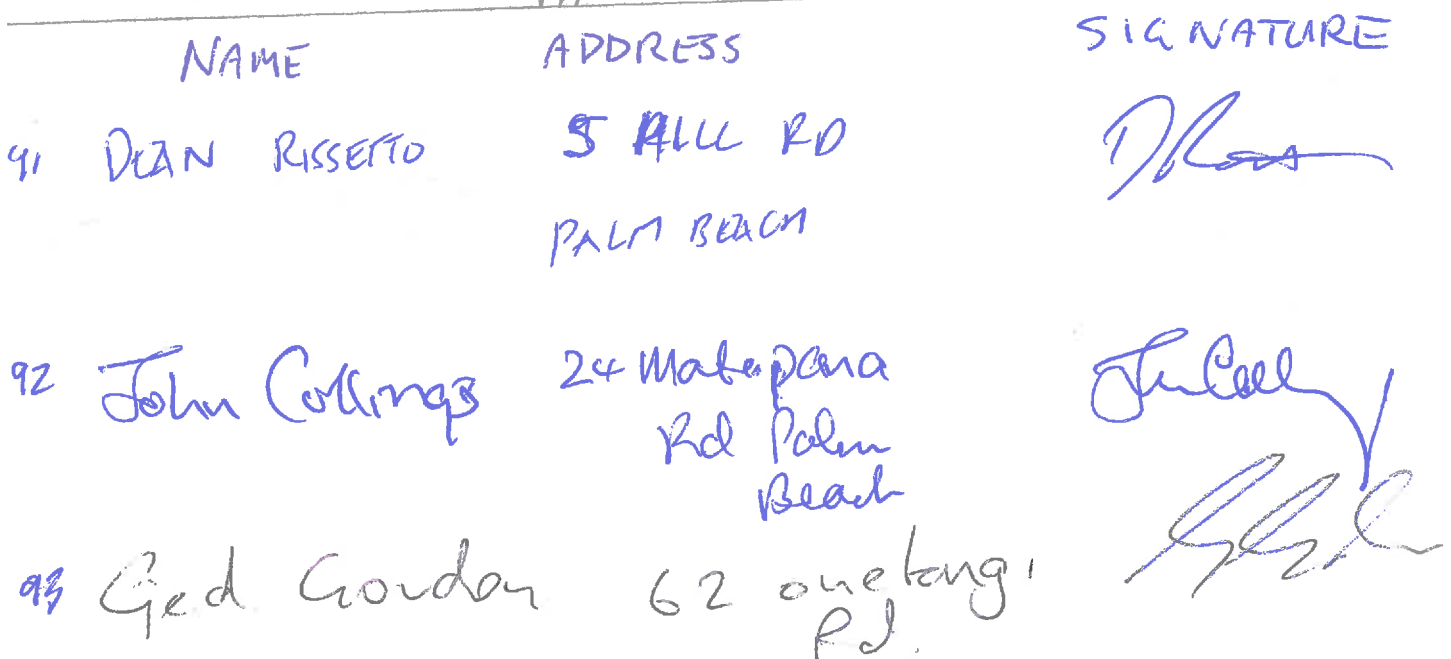 NAME ADDRESS SIGNATURE
91 DEAN RISSETTO 5 HILL RD
PALM BEACH
92 John Collings 24 Matapana
Rd Palm
Beach
93 Ged Gordon 62 onetangi
Rd.